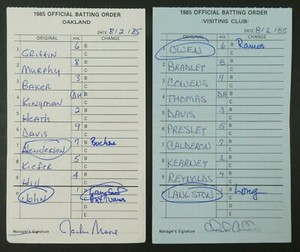 1985 OFFICIAL BATTING ORDER
OAKLAND
DATE 8/2/85
ORIGINAL
CHANGE
1 GRIFFIN 6
2 MURPHY 8
3 BAKER 3
4 KINGMAN DH
5 HEATH 2
6 DAVIS 9
7 HENDERSON 7
8 KIEFER 5
9 HILL 4
JOHN 1
Manager's Signature
Jackie Moore
1985 OFFICIAL BATTING ORDER
VISITING CLUB:
DATE 8/2/85
ORIGINAL
CHANGE
1 OWEN 6 Ramos
2 BRADLEY 8
3 COWENS 9
4 THOMAS DH
5 DAVIS 3
6 PRESLEY 5
7 CALDERON 7
8 KEARNEY 2
9 REYNOLDS 4
LANGSTON 1 Long
Manager's Signature